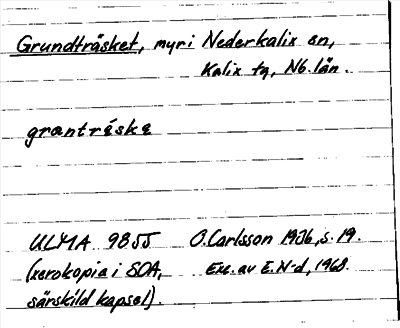 Grundträsket, myr i Nederkalix sn,
Kalix tg, Nb. län.
grœntrę́skę
ULMA 9855 O. Carlsson 1936, s. 19.
(xerokopia i SOA, Exc. av E. N-d, 1968.
särskild kapsel).